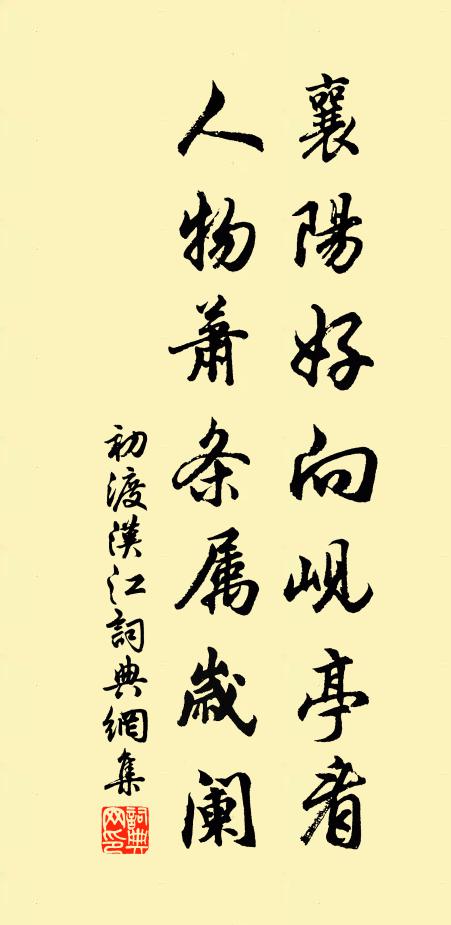 襄陽好向峴亭看
人物蕭条属歲闌
初渡漢江詞典網集
詞典網印